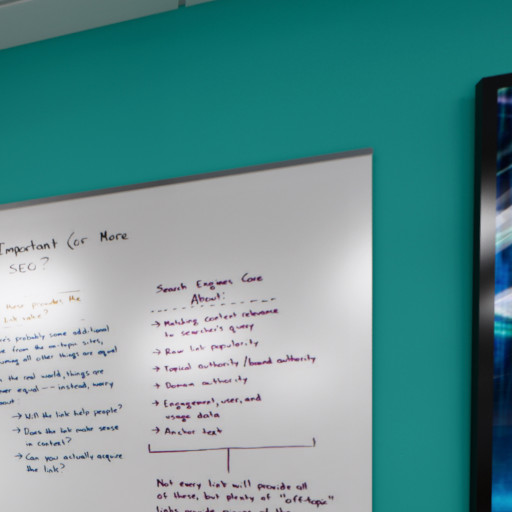 Important (or More
SEO?
provides the
link value?
probably some additional
from the on-topic sites,
all other things are equal
the real world, things are
equal -- instead, worry
→ Will the link help people?
→ Does the link make sense
in context?
→ Can you actually acquire
the link?
Search Engines Care
About:
→ Matching content relevance
to searcher's query
→ Raw link popularity
→ Topical authority / brand authority
→ Domain authority
→ Engagement, user, and
usage data
→ Anchor text
Not every link will provide all
of these, but plenty of "off-topic"
links provide of the